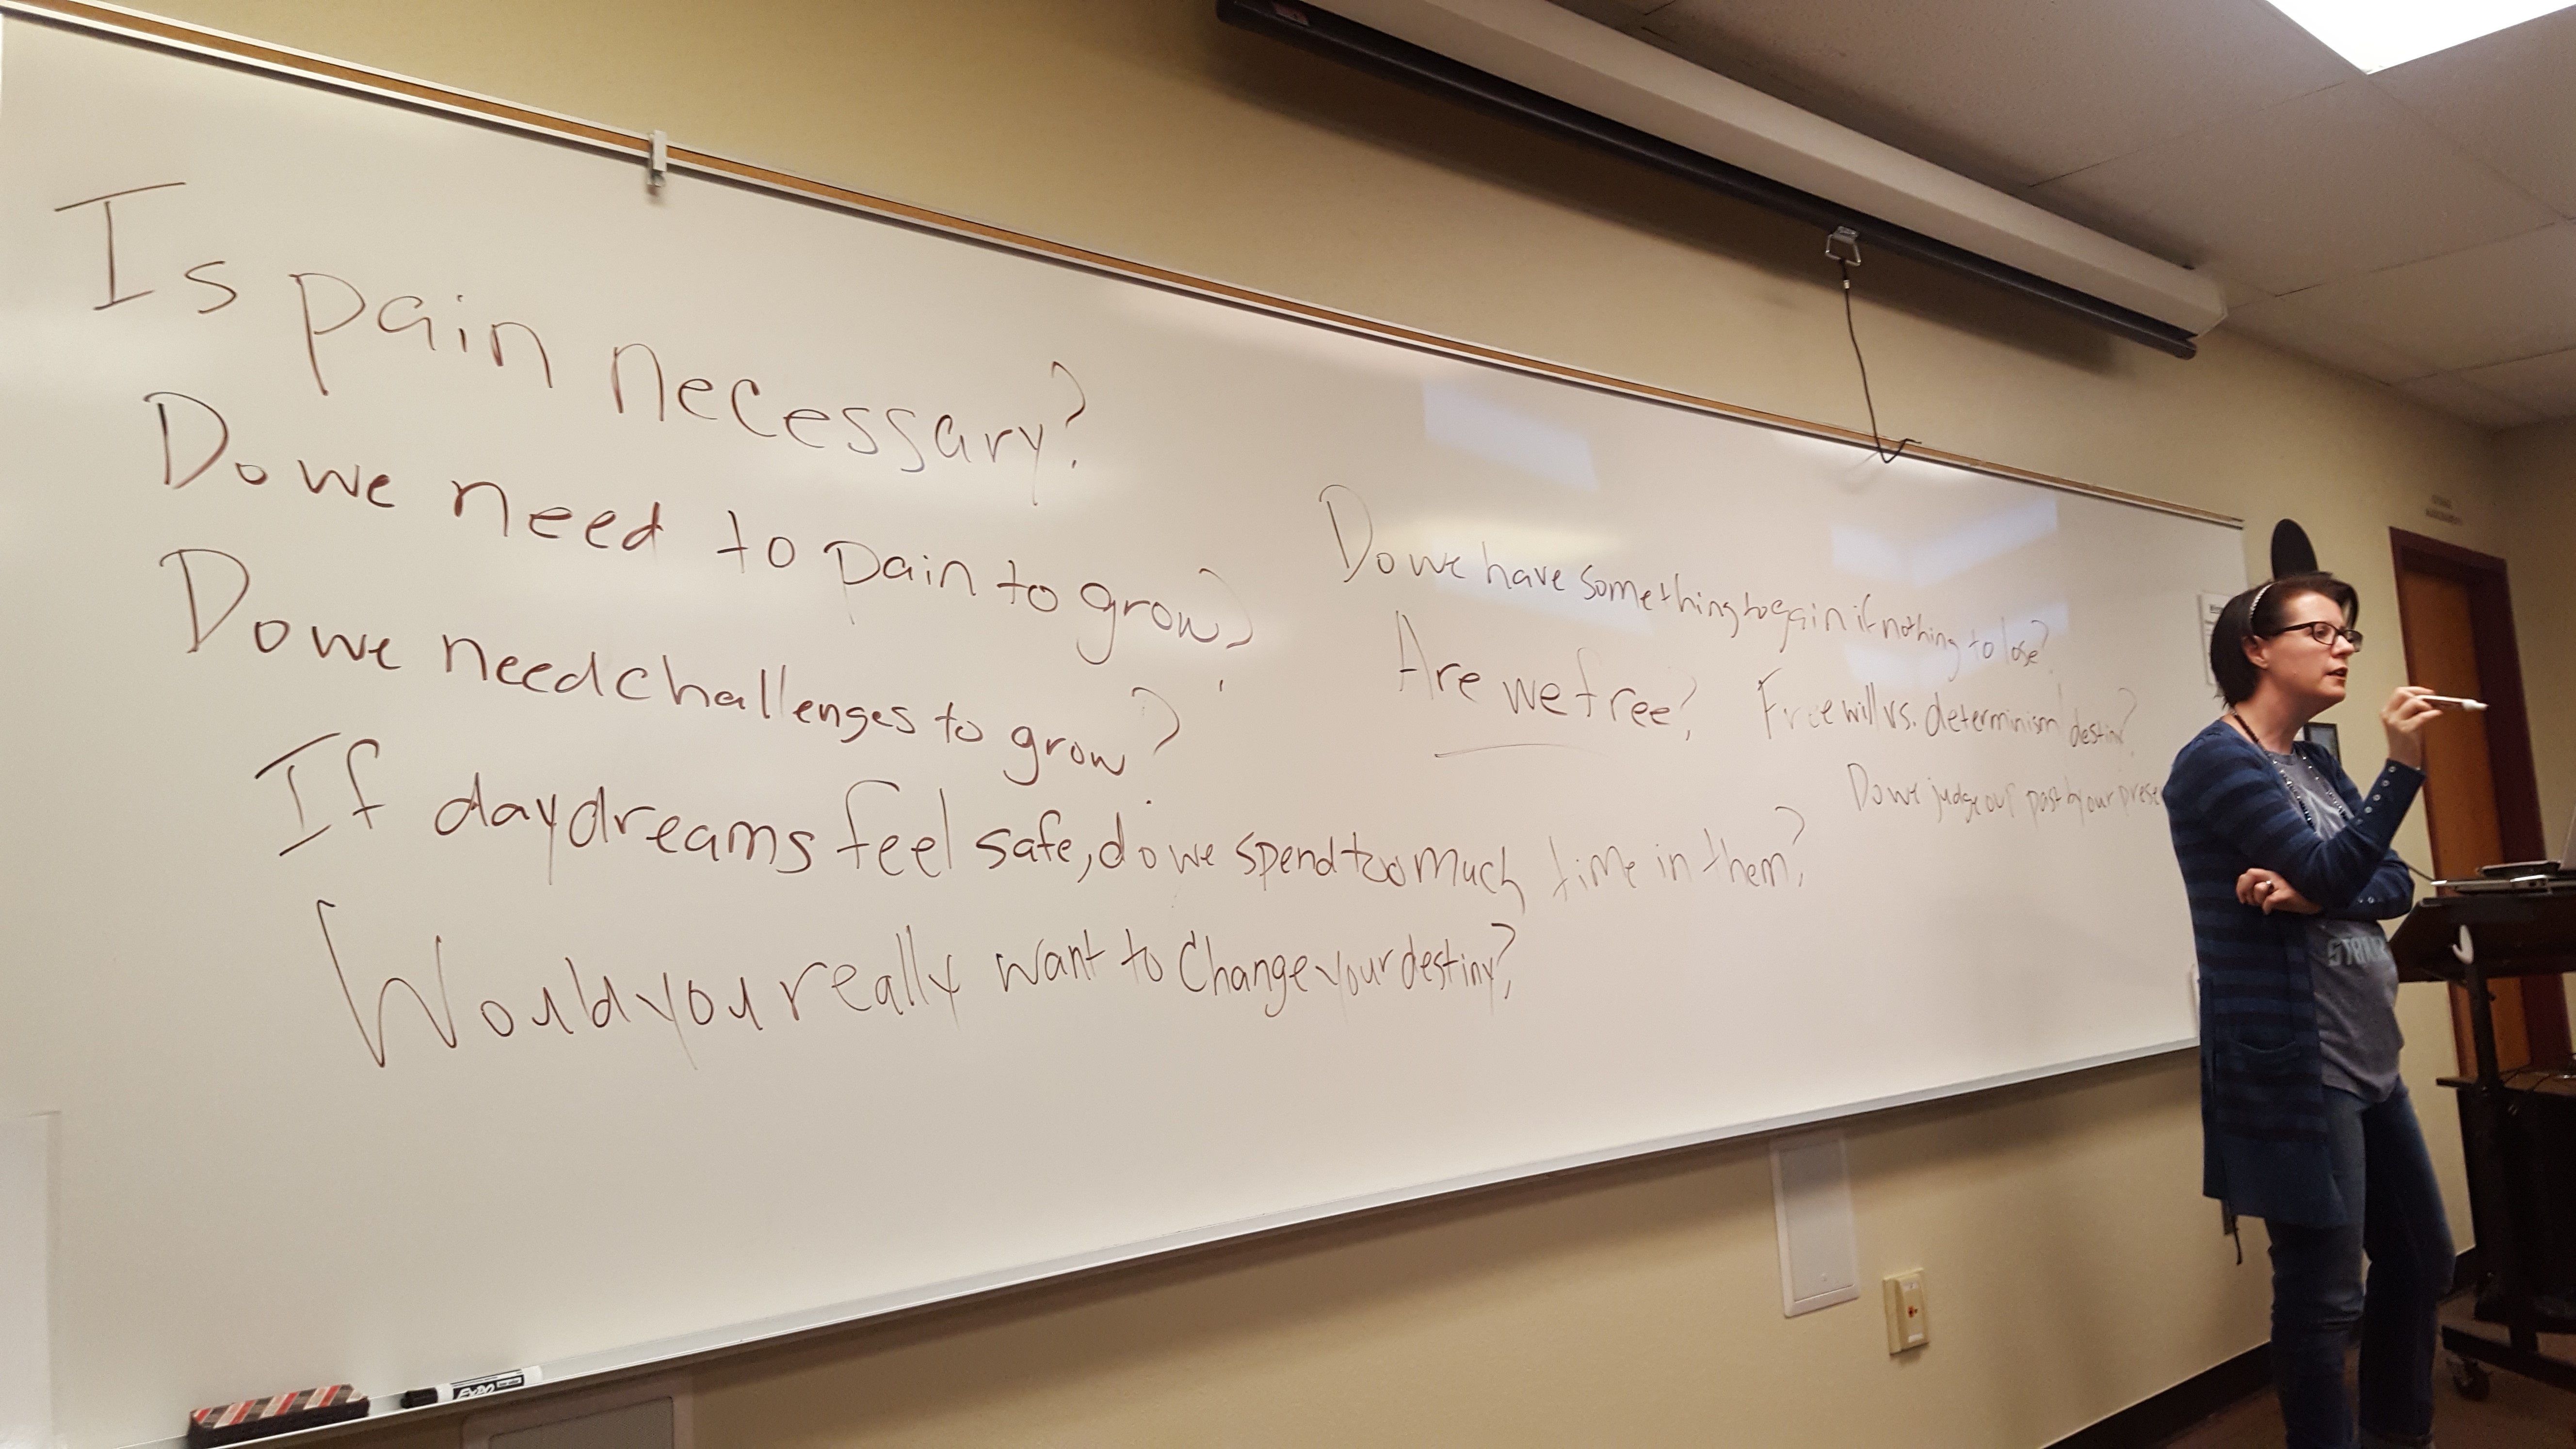 Is pain necessary?
Do we need to pain to grow?
Do we need challenges to grow?
If daydreams feel safe, do we spend too much time in them?
Would you really want to change your destiny?
Do we have something to gain if nothing to lose?
Are we free?
Free will vs. determinism/destiny?
Do we judge our past by our prese
EXPO